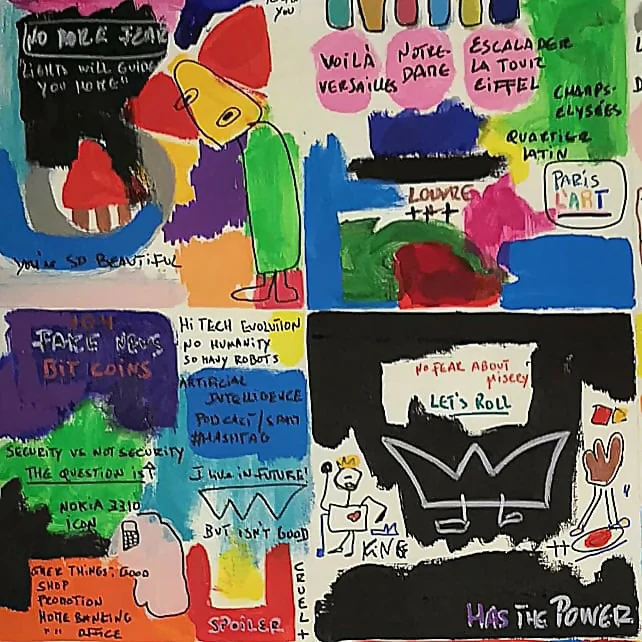 YOU
NO MORE FEAR
"LIGHTS WILL GUIDE
YOU HOME"
YOU'RE SO BEAUTIFUL
VOILÀ
VERSAILLES
NOTRE-
DAME
ESCALADER
LA TOUR
EIFFEL
CHAMPS-
ELYSÉES
QUARTIER
LATIN
LOUVRE
PARIS
L'ART
FAKE NEWS
BIT COINS
SECURITY VS NOT SECURITY
THE QUESTION IS
NOKIA 3310
ICON
OTHER THINGS: GOOD
SHOP
PROMOTION
HOME BANKING
" " OFFICE
Hi TECH EVOLUTION
NO HUMANITY
SO MANY ROBOTS
ARTIFICIAL
INTELLIGENCE
PODCAST/SPAM
#HASHTAG
I live in FUTURE!
BUT ISN'T GOOD
SPOILER
CRUEL +
NO FEAR ABOUT
MISERY
LET'S ROLL
KING
HAS THE POWER